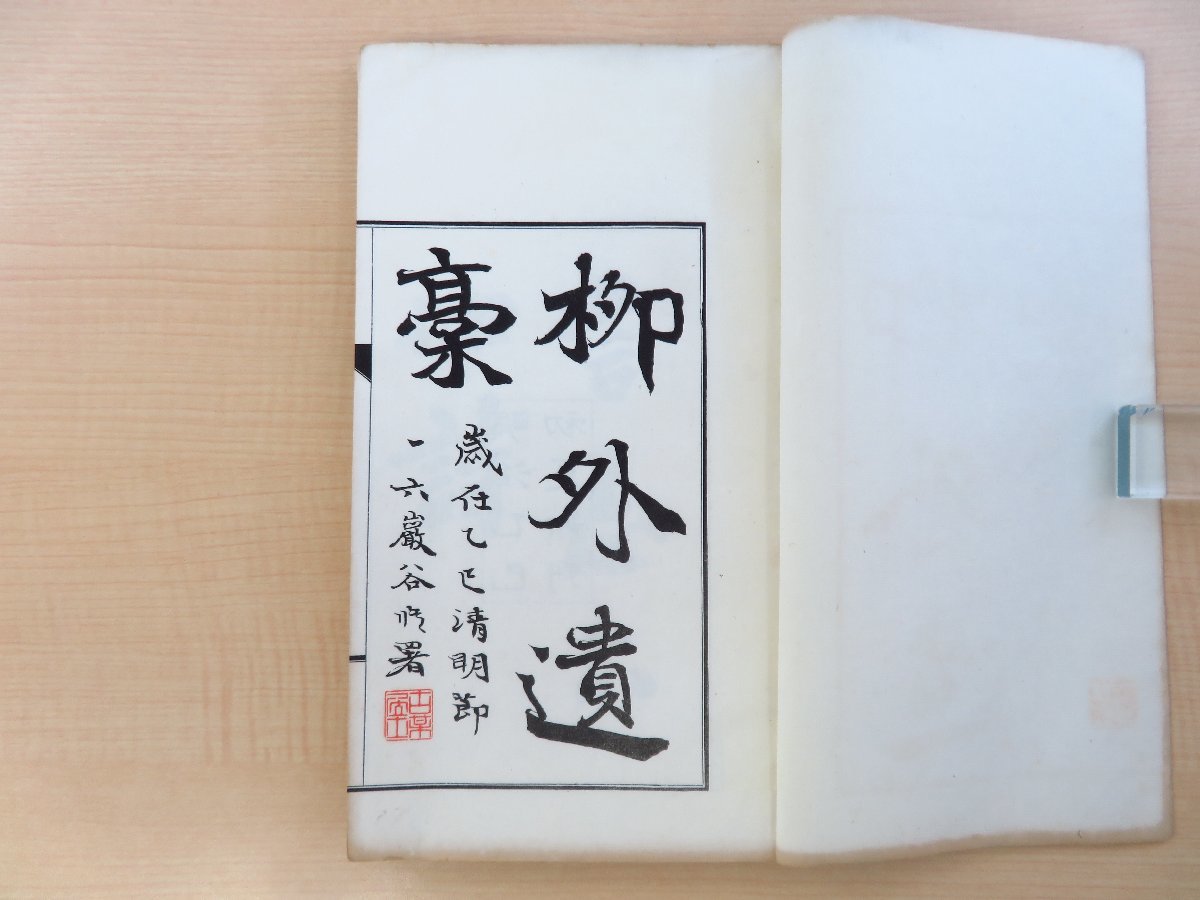 柳外遺
稾
歳在乙巳清明節
一六巖谷修署